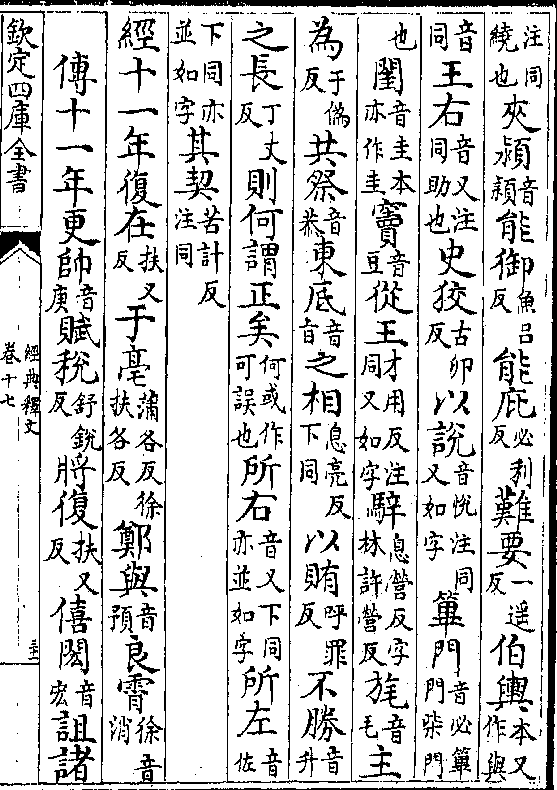 注同繞也夾潁音潁能御魚呂反能庇必利反難要一遥反伯輿本又作與
音同王右音又注同助也史狡古卯反以說音悅注同又如字篳門音必篳門柴門
也閨音圭本亦作圭竇音豆從王才用反注同又如字騂息營反字林許營反旄音毛主
為于偽反共祭音恭東底音旨之相息亮反下同以賄呼罪反不勝音升
之長丁丈反則何謂正矣何或作可誤也所右音又下同亦並如字所左音佐
下同亦並如字其契苦計反注同
經十一年復在扶又反于亳蒲各反徐扶各反鄭與音預良霄徐音消
傳十一年更帥音庚賦稅舒銳反將復扶又反僖閎音宏詛諸
欽定四庫全書
經典釋文
卷十七